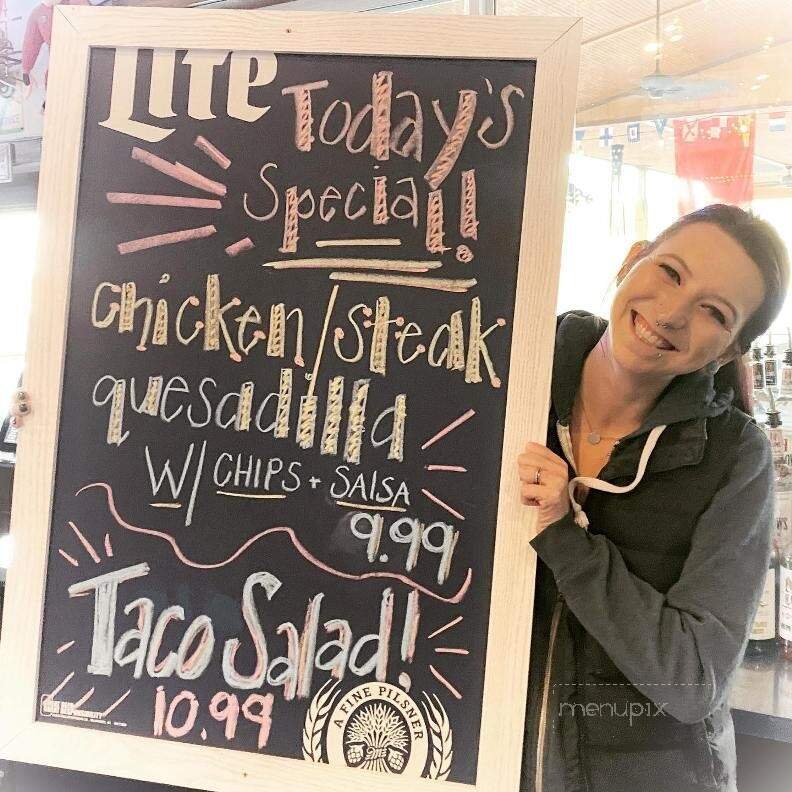 Lite
Today's
Special!!
chicken/steak
quesadilla
W/ CHIPS + SALSA
9.99
Taco Salad!
10.99
A FINE PILSNER
menupix